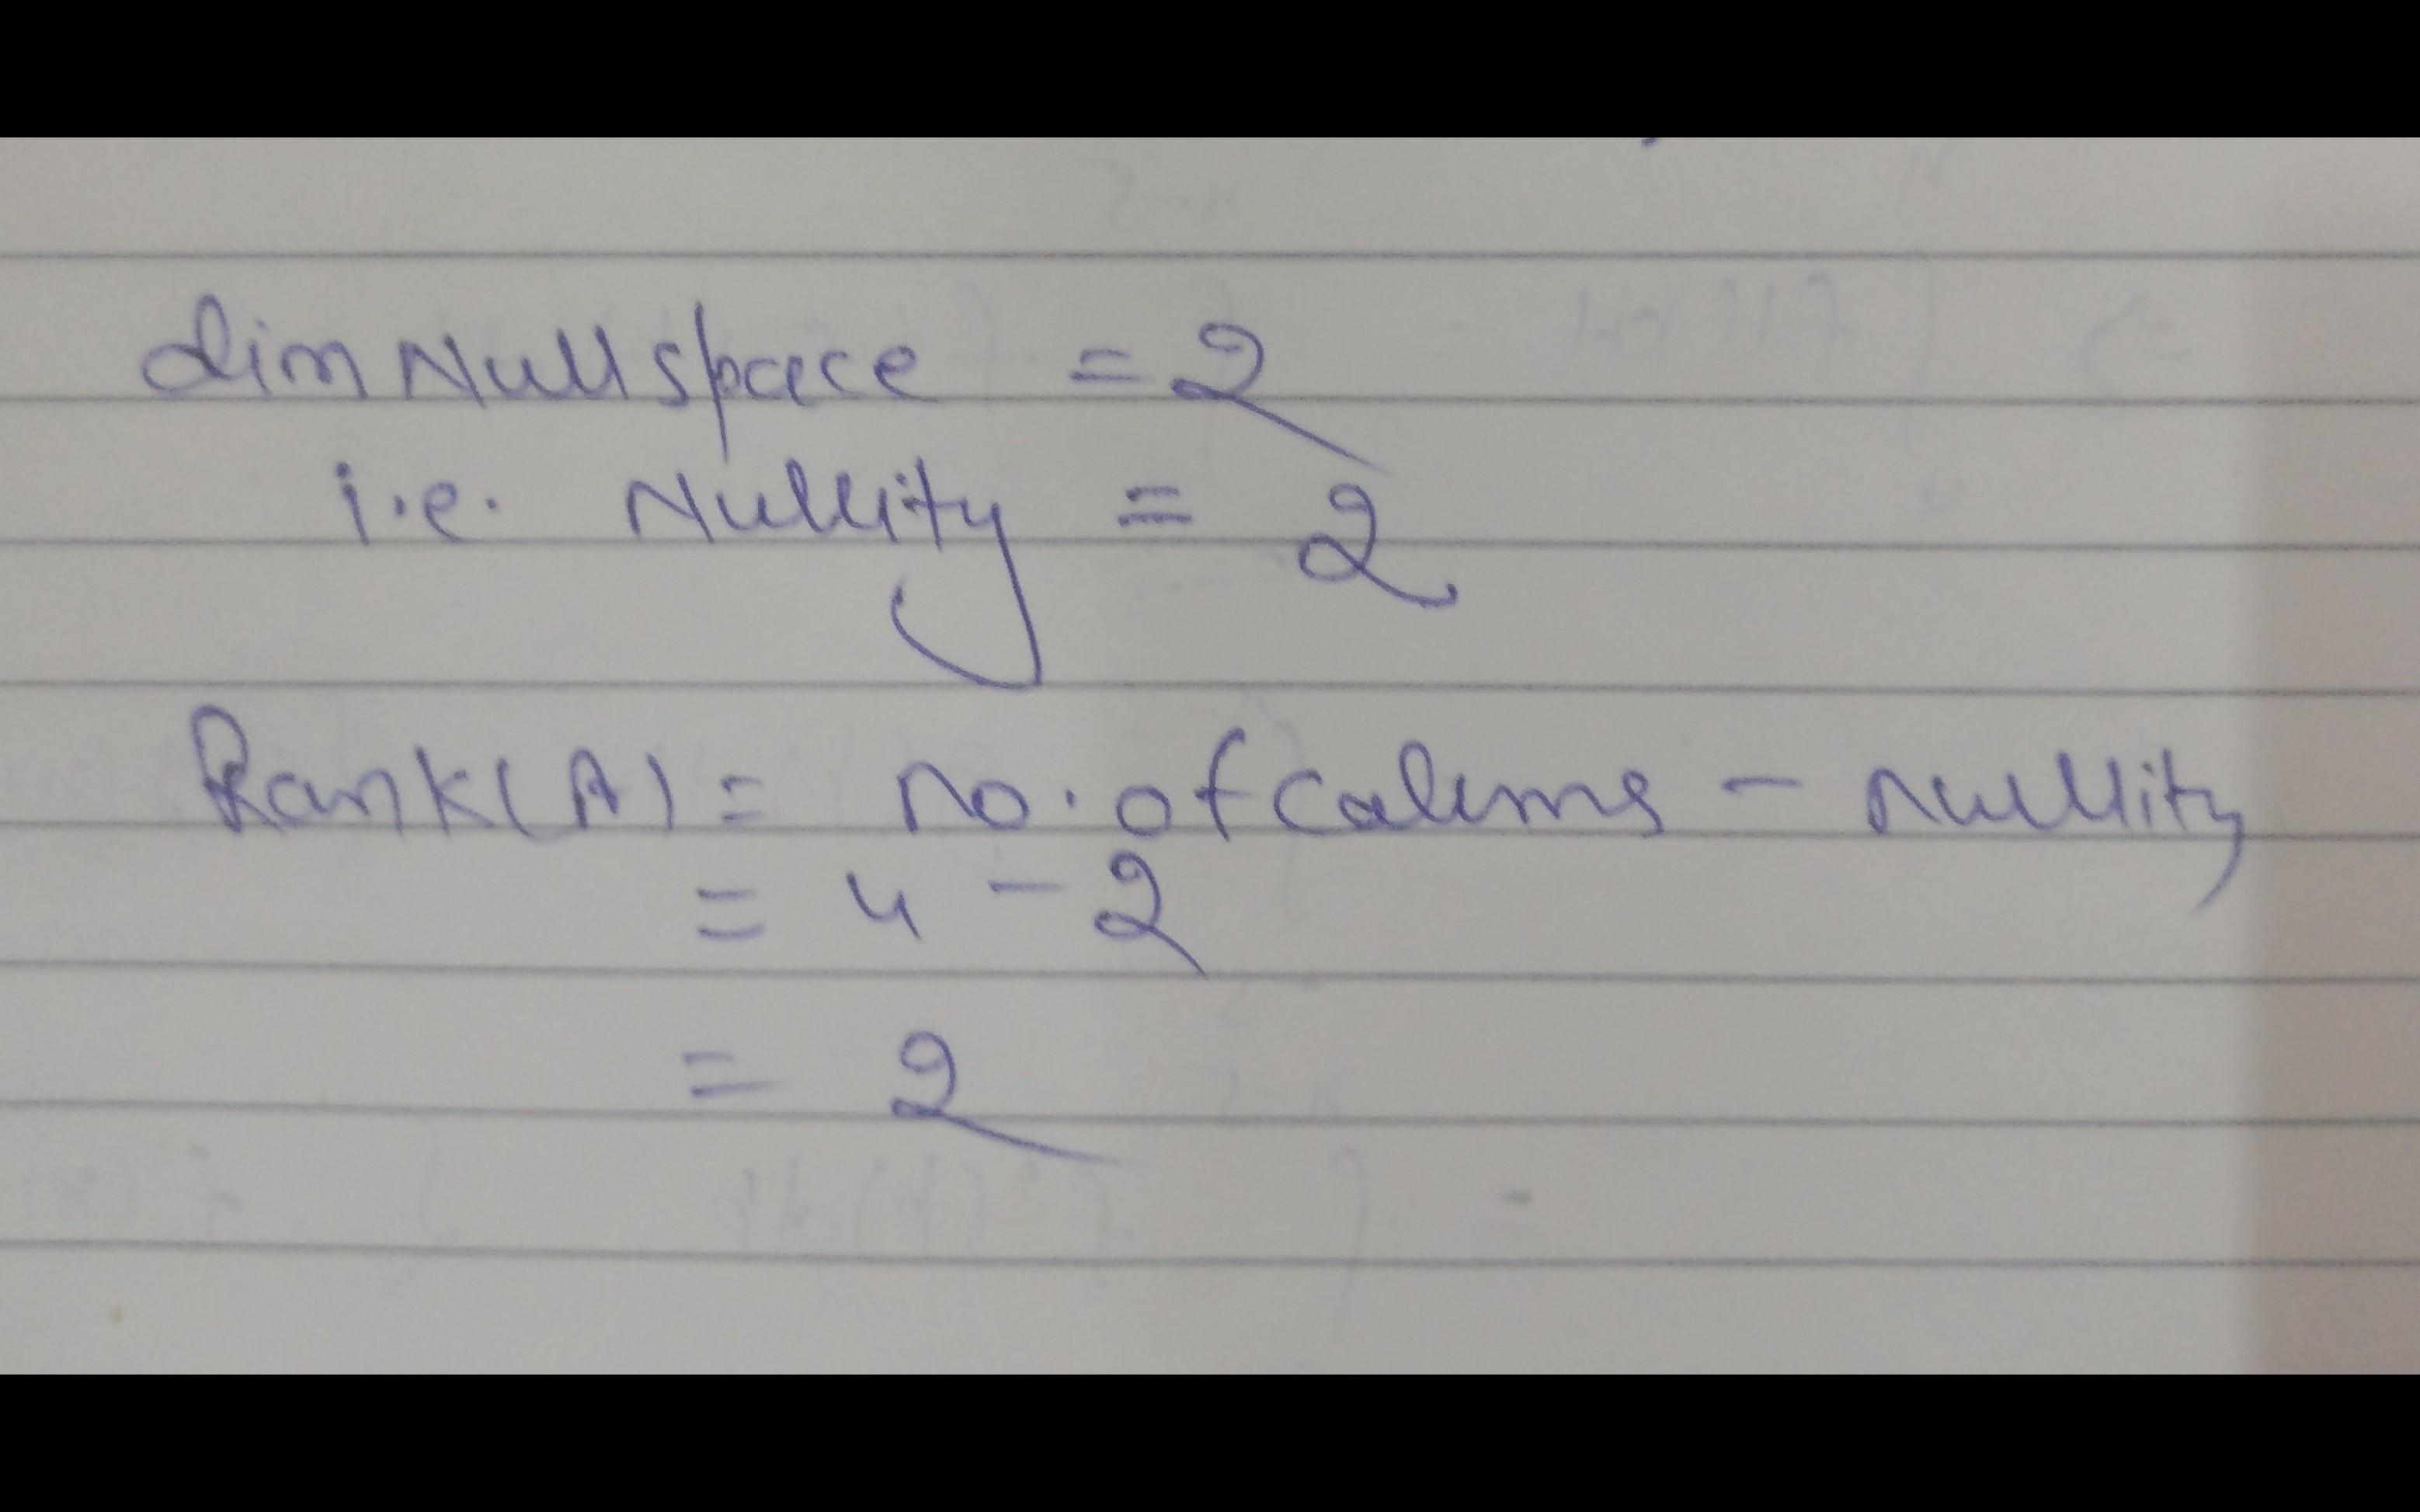 dim Null space = 2
i.e. Nullity = 2
Rank(A) = no. of calums - Nullity
= 4 - 2
= 2